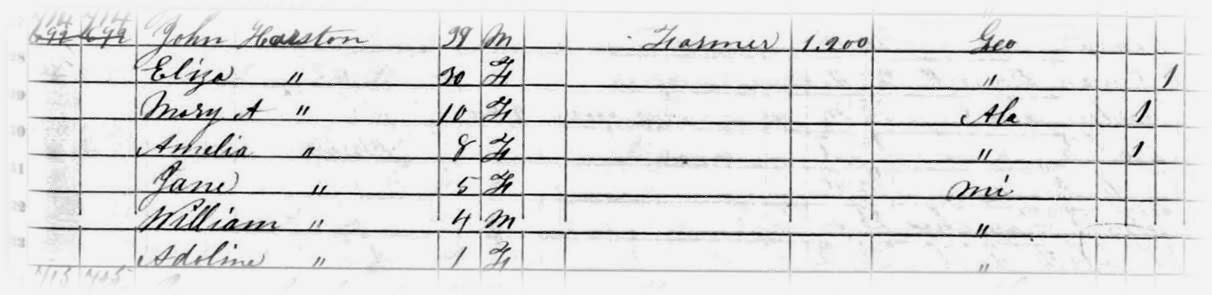 714 714
692 692 John Harston 39 M Farmer 1.200 Geo
Eliza " 30 F " 1
Mary A " 10 F Ala 1
Amelia " 8 F " 1
Jane " 5 F mi
William " 4 M "
Adoline " 1 F "
715 715